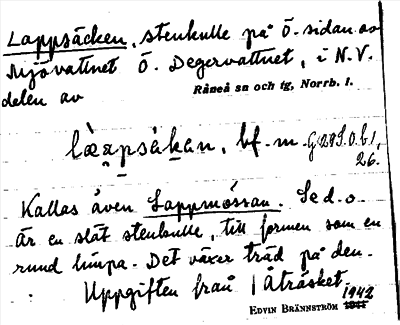 Lappsäcken, stenkulle på Ö.-sidan av
Mjövattnet Ö. Degervattnet, i N.V.
delen av
Råneå sn och tg, Norrb. l.
bf. m.
26.
Kallas även Lappmössan. Se d.o.
Är en slät stenkulle, till formen som en
rund limpa. Det växer träd på den.
Uppgiften från Åträsket.
Edvin Brännström 1942